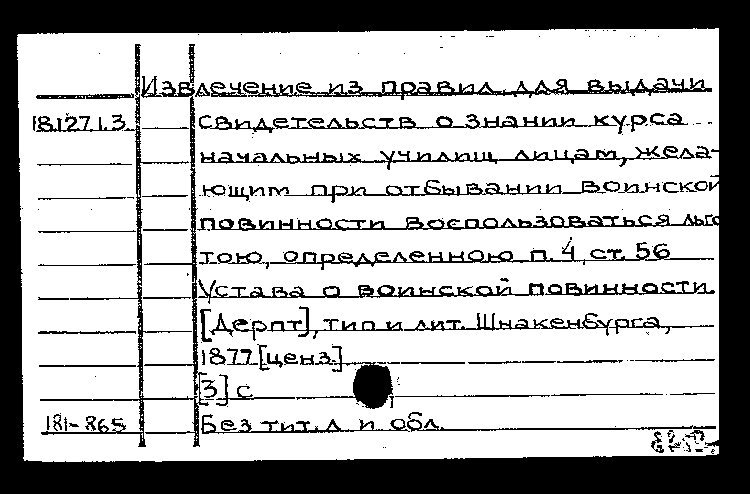 Извлечение из правил для выдачи
18.127.1.3. свидетельств о знании курса
начальных училищ лицам, жела-
ющим при отбывании воинской
повинности воспользоваться льго
тою, определенною п. 4, ст. 56
Устава о воинской повинности.
[Дерпт], тип и лит. Шнакенбурга,
1877 [ценз.]
[3] с
181-865 Без тит. л и обл.